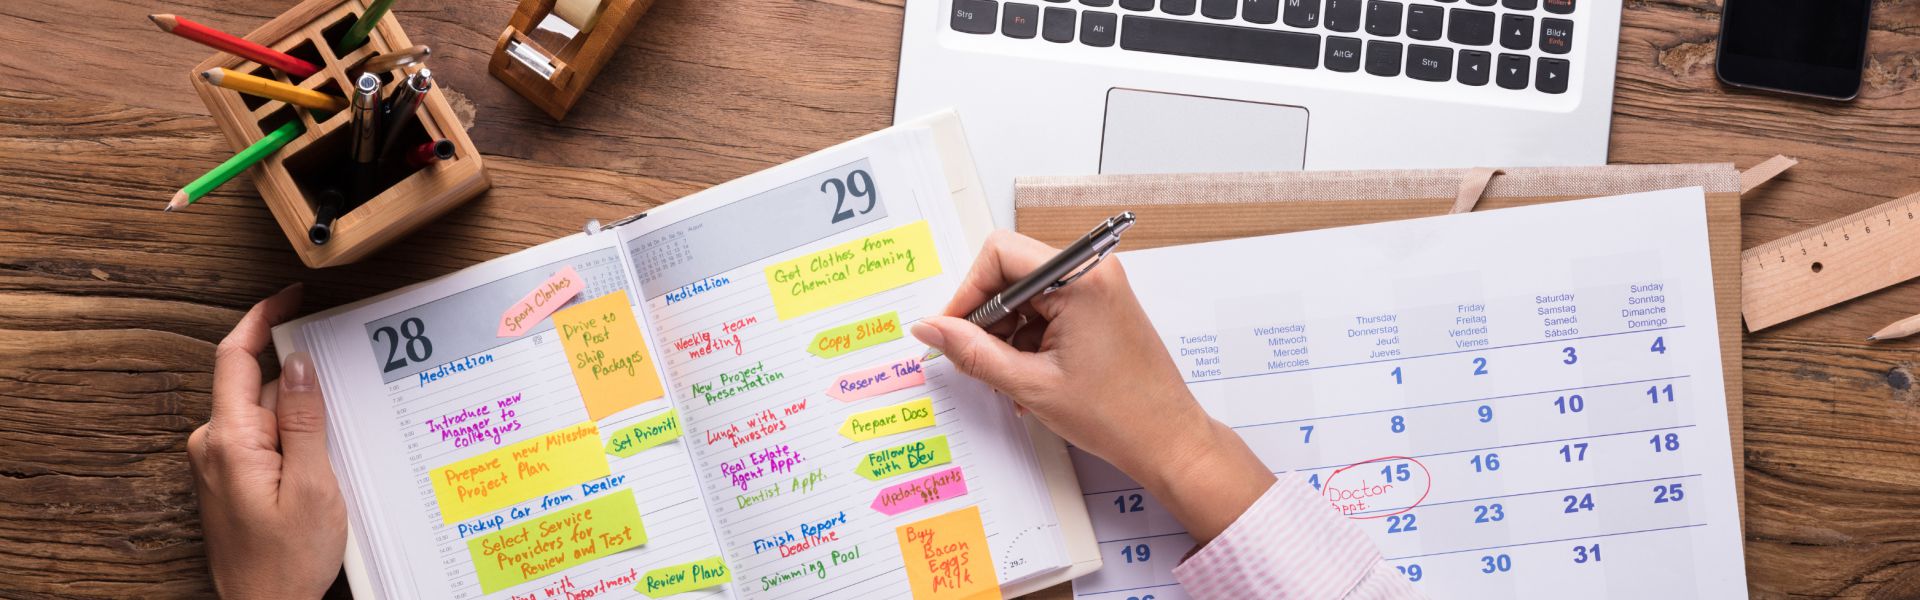 Strg
Fn
Alt
Alt Gr
Strg
Bild
Einfg
28
Meditation
Sport Clothes
Drive to
Post
Ship
Packages
Introduce new
Manager to
Colleagues
Set Prioriti
Prepare new Milestone
Project Plan
Pickup Car from Dealer
Select Service
Providers for
Review and Test
with
Department
Review Plans
29
August
Meditation
Get Clothes from
Chemical cleaning
Weekly team
meeting
Copy Slides
New Project
Presentation
Reserve Table
Lunch with new
Investors
Prepare Docs
Real Estate
Agent Appt.
Follow up
with Dev
Dentist Appt.
Update Charts
!!!
Finish Report
Deadline
Swimming Pool
Buy
Bacon
Eggs
Milk
29.7.
Tuesday Wednesday Thursday Friday Saturday Sunday
Dienstag Mittwoch Donnerstag Freitag Samstag Sonntag
Mardi Mercedi Jeudi Vendredi Samedi Dimanche
Martes Miércoles Jueves Viernes Sábado Domingo
1 2 3 4
7 8 9 10 11
4 15 16 17 18
Doctor
Appt.
12 22 23 24 25
19 29 30 31
26
1 2 3 4 5 6 7 8